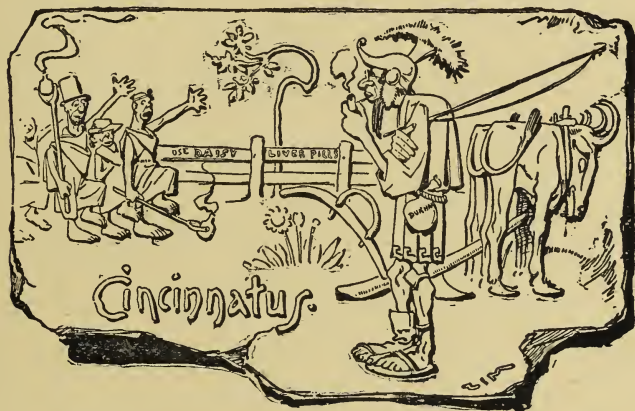 USE DAISY LIVER PILLS
DURHAM
Cincinnatus.
ZIM